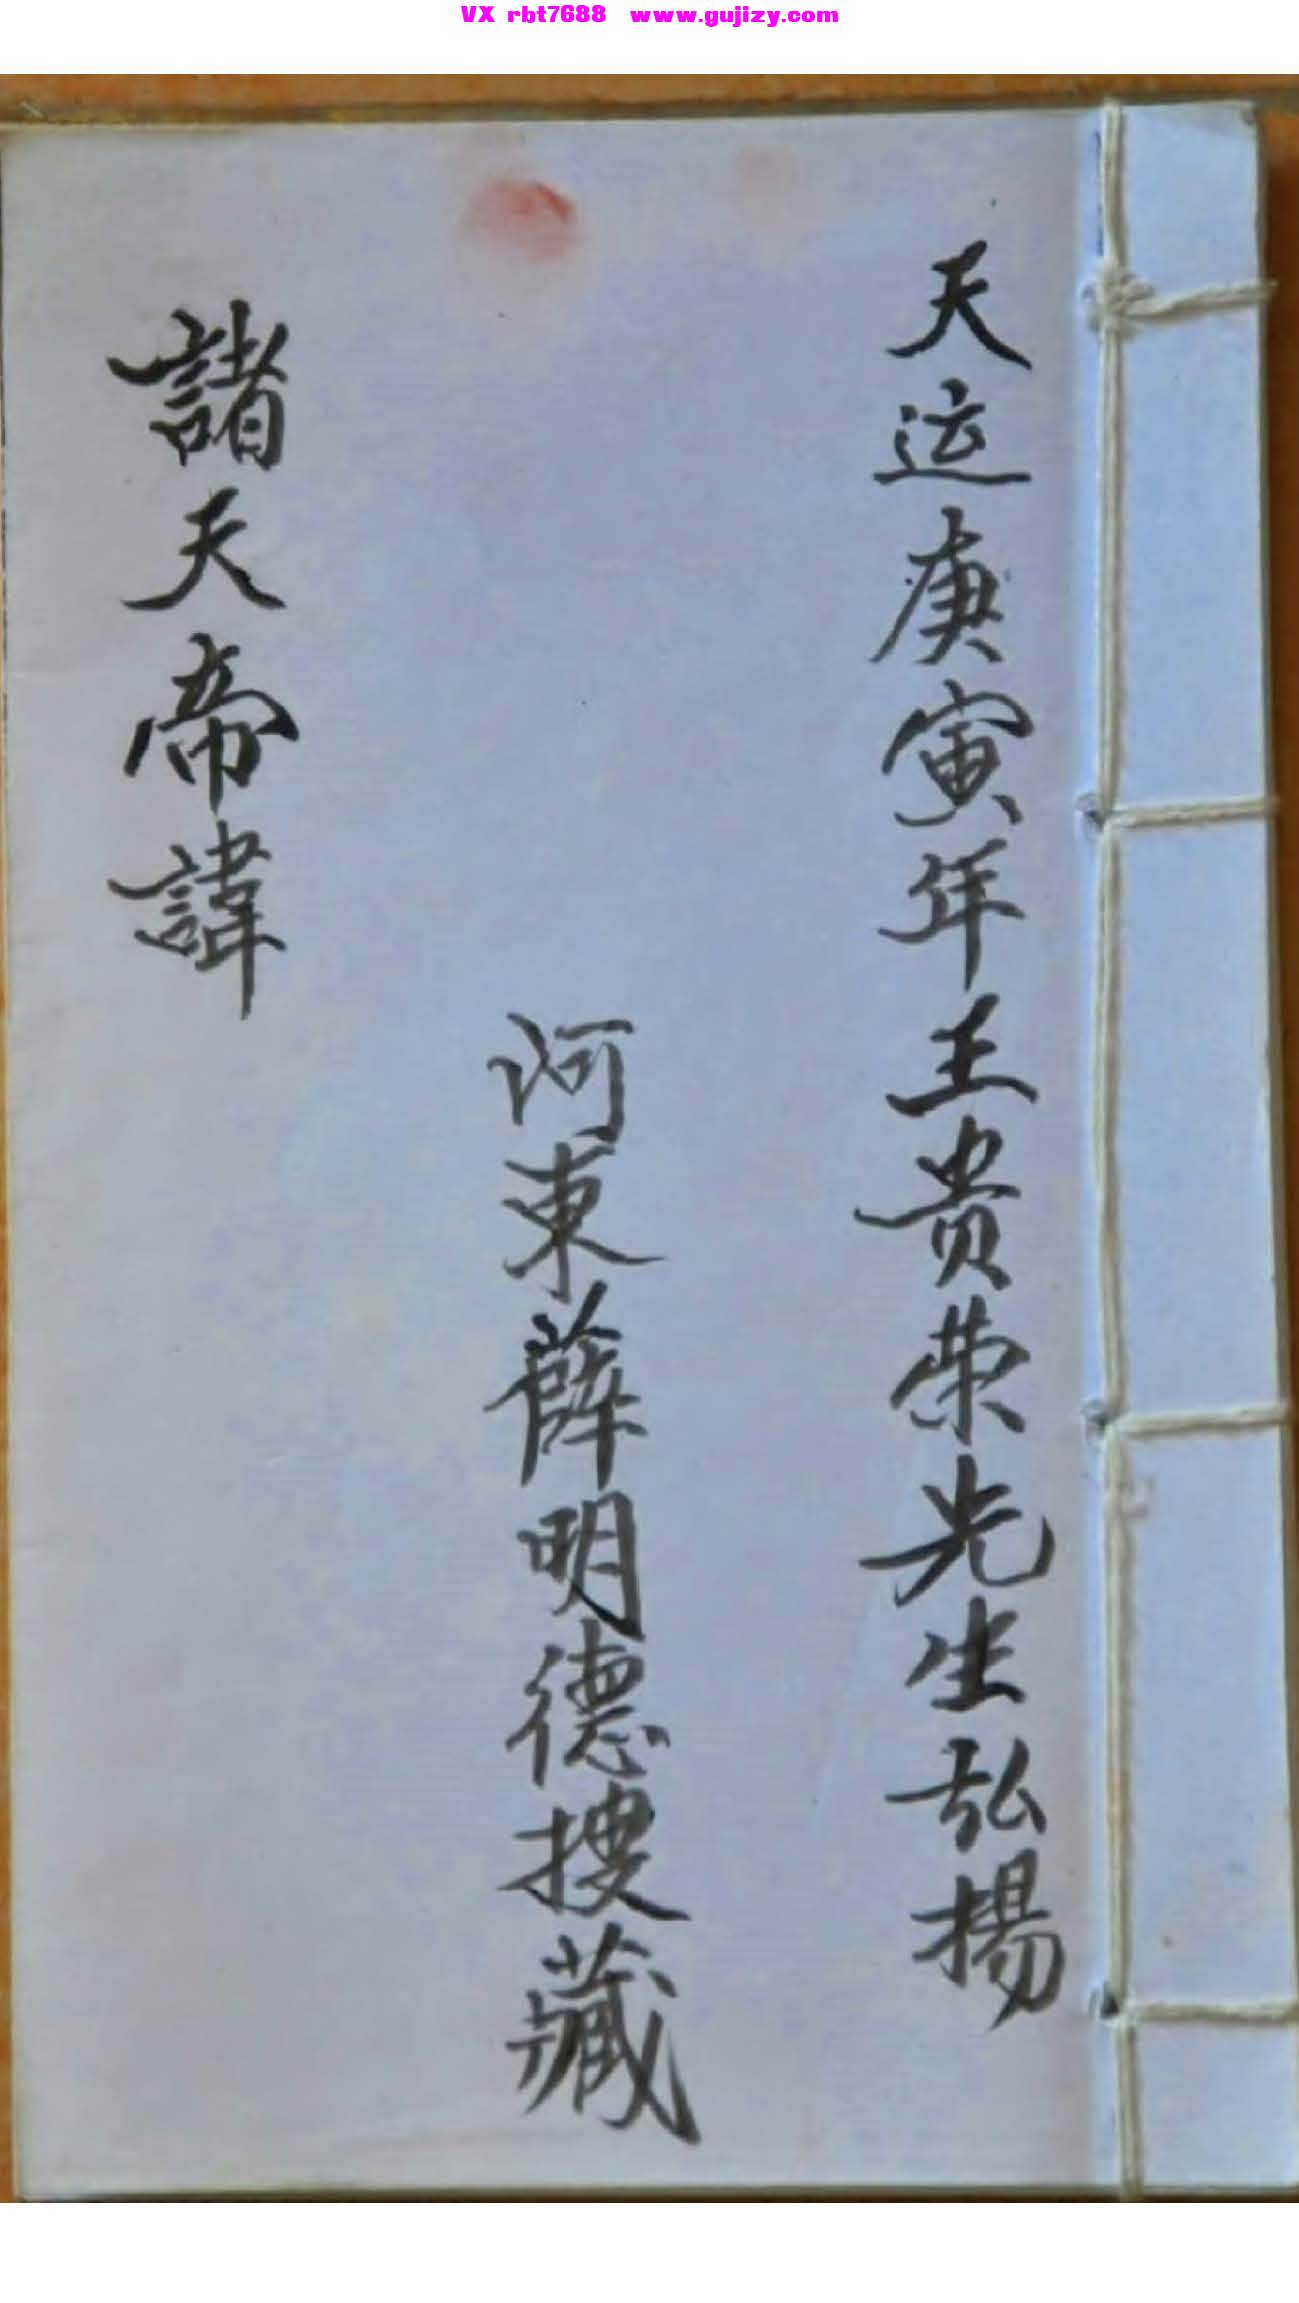 VX rbt7688 www.gujizy.com
天运庚寅年王贵荣先生弘揚
河東薛明德搜藏
諸天帝諱